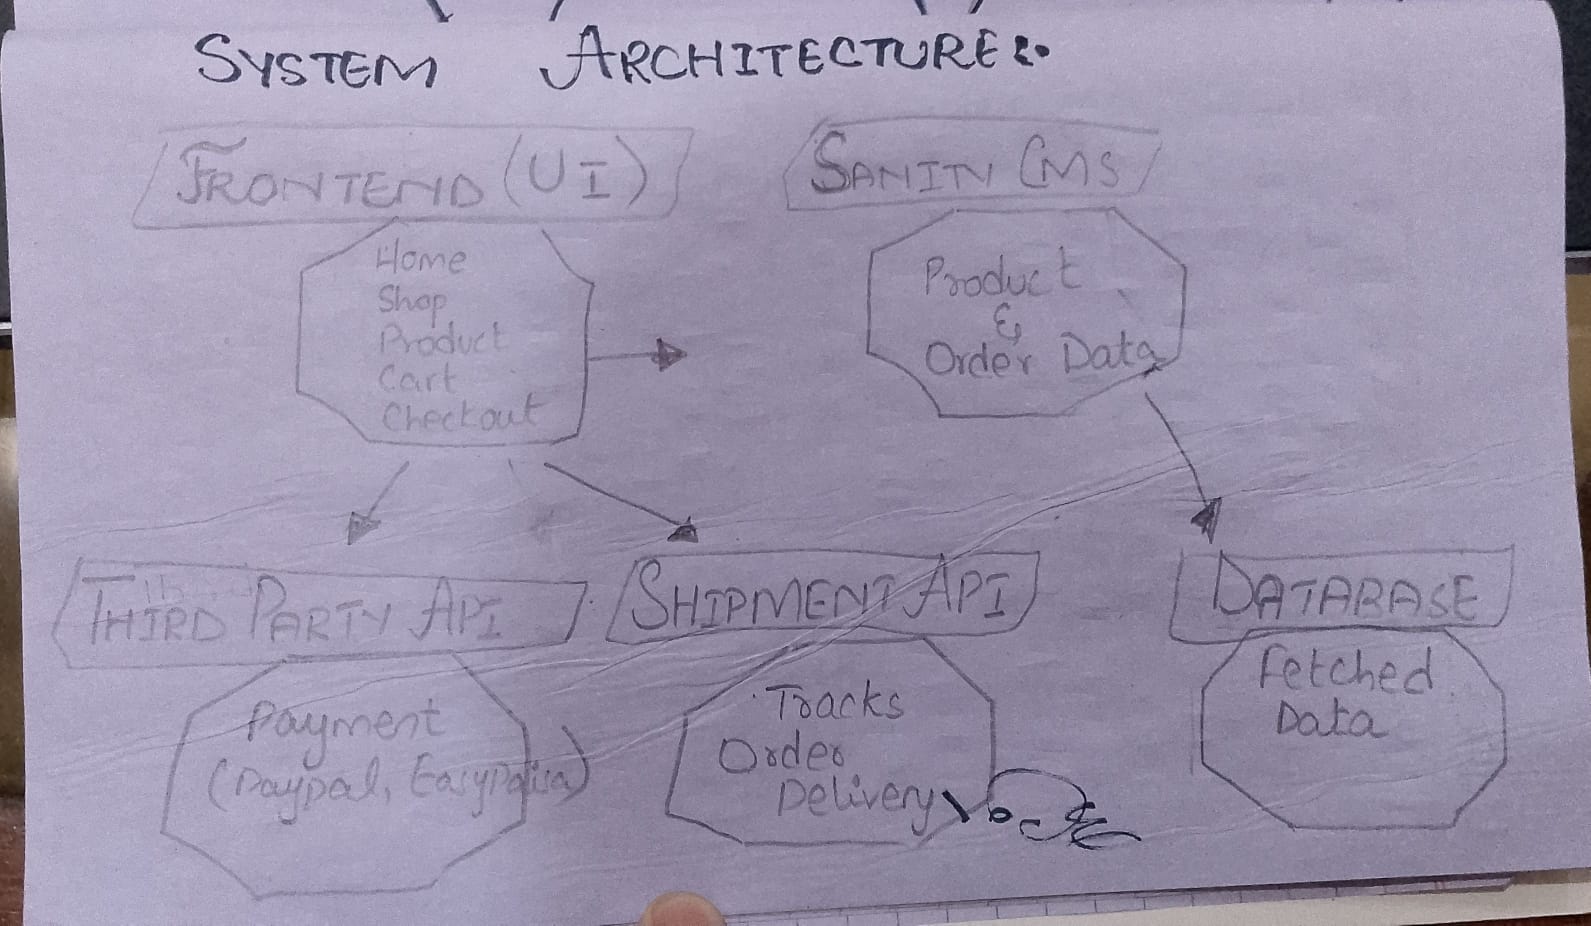 SYSTEM ARCHITECTURE:
FRONTEND (UI)
Home
Shop
Product
Cart
Checkout
SANITY CMS
Product
&
Order Data
THIRD PARTY API
Payment
(Paypal, Easypaisa)
SHIPMENT API
Tracks
Order
Delivery
DATABASE
Fetched
Data